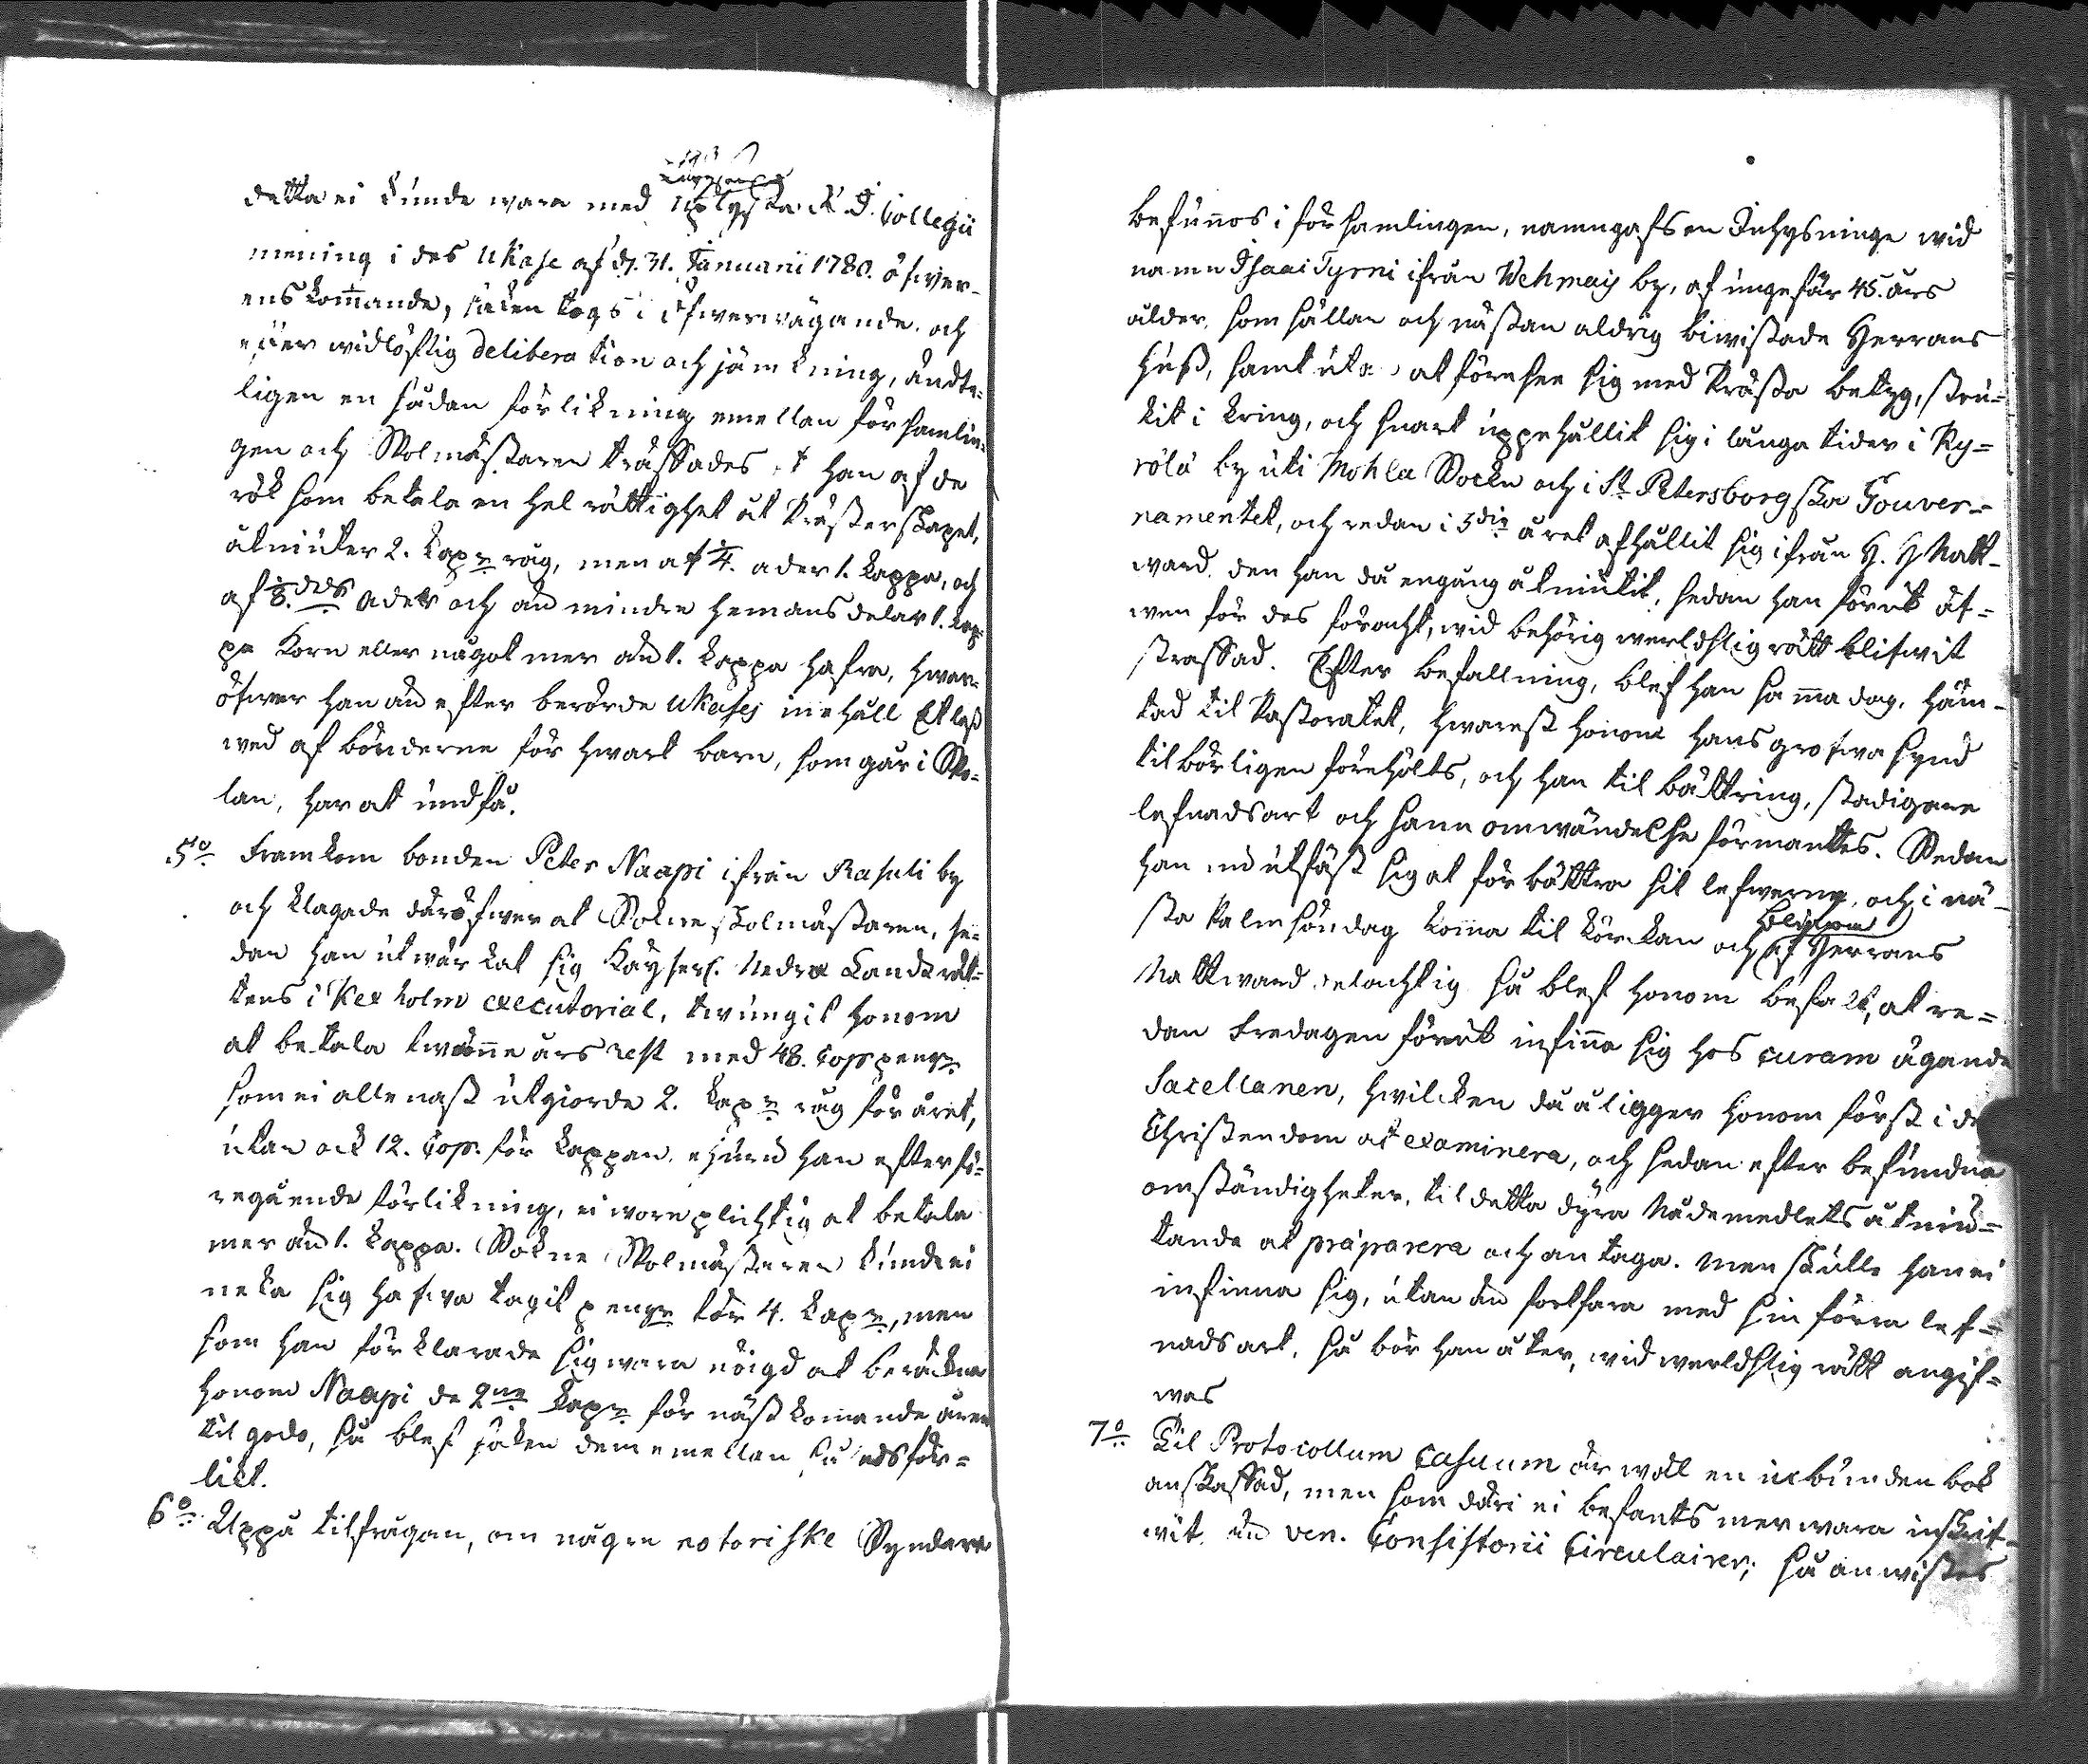 detta ei kunde wara med uplysta K. J. Collegii
mening i des Ukase af d. 31. Januarii 1780. öfwer-
enskommande, saken togs i öfwerwägande och
efter widlöftig deliberation och jämkning, ändte-
ligen en sådan förlikning emellan församlin-
gen och Skolmästaren träffades, at han af de
rök som betala en hel rättighet åt Prästerskapet,
åtniuter 2. kapr råg, men af 1/4. ader 1. kappa, och
af 1/8.dels ader och än mindre hemans delar 1. kap-
pa Korn eller något mer än 1. kappa hafra, hwar-
öfwer han än efter berörde Ukases inehåll Et lass
wed af bönderne för hwart barn, som går i Sko-
lan, har at undfå.
5o Framkom bonden Peter Naapi ifrån Rasuli by
och klagade däröfwer at Sokne skolmästaren, se-
dan han utwärkat sig Kayserl. Nedra Landträt-
tens i Kexholm executorial, twungit honom
at betala twänne års rest med 48. Cop pengr
som ei allenast utgiorde 2. kapr råg för året,
utan ock 12. Cop. för kappan, ehuru han efter fö-
regående förlikning, ei wore plichtig at betala
mer än 1. kappa. Sokne Skolmästaren kunde ei
neka sig hafwa tagit pengr för 4. kapr, men
som han förklarade sig wara nöigd at beräkna
honom Naapi de 2ne kapr för näst kommande åren
til godo, så blef saken dem emellan sålunds för-
likt.
6o Uppå tilfrågan, om någre notoriske Syndare
befunnos i församlingen, namngafs en Inhysninge wid
namn Isaai Tyrni ifrån Wehmais by, af ungefär 45. års
ålder, som sällan och nästan aldrig biwistade Herrans
Huss, samt utan at förese sig med Prästa betyg, stru-
kit i kring, och snart uppehållit sig i långa tider i Ky-
rölä by uti Mohla Sockn och i St. Petersborgska Gouver-
namentet, och redan i 3die året afhållit sig ifrån H. H Natt-
ward, den han då engång åtniutit, sedan han förut äf-
wen för des förackt, wid behörig werldslig rätt blifwit
straffad. Efter befallning, blef han samma dag, häm-
tad til Pastoratet, hwarest honom hans grofwa synd
tilbörligen förehölts, och han til bättring, stadigare
lefnadsart och sann omwändelse förmantes. Sedan
han nu utfäst sig at förbättra sit lefwerne, och i nä-
sta Palmsöndag komma til körckan och af Herrans
blifwa
Nattward delachtig så blef honom befalt, at re-
dan Fredagen förrut infinna sig hos curam ägande
Sacellanen, hwilcken då åligger honom först i de
Christendom at examinera, och sedan efter befundna
omständigheter, til detta dyra Nådemedlets åtniu-
tande at præparera och antaga. Men skulle han ei
infinna sig, utan än fortfara med sin förra lef-
nadsart, så bör han åter, wid werldslig rätt angif-
was
7o Til Protocollum Casuum är wäll en inbunden bok
anskaffad, men som däri ei befants mer wara inskrif-
wit än ven. Consistorii Circulairer; så anwistes